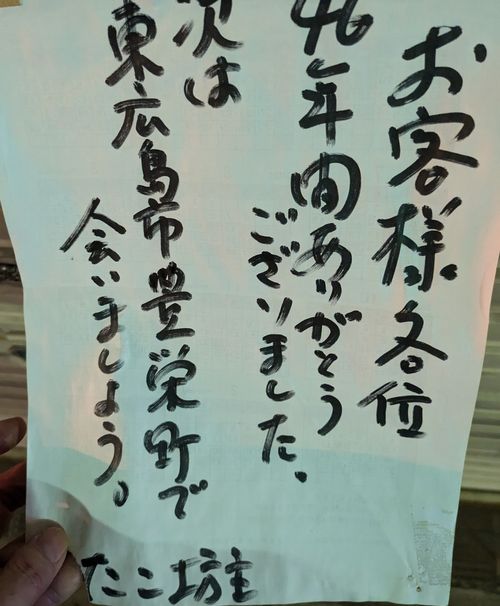 お客様各位
46年間ありがとう
ございました、
次は
東広島市豊栄町で
会いましょう。
たこ坊主